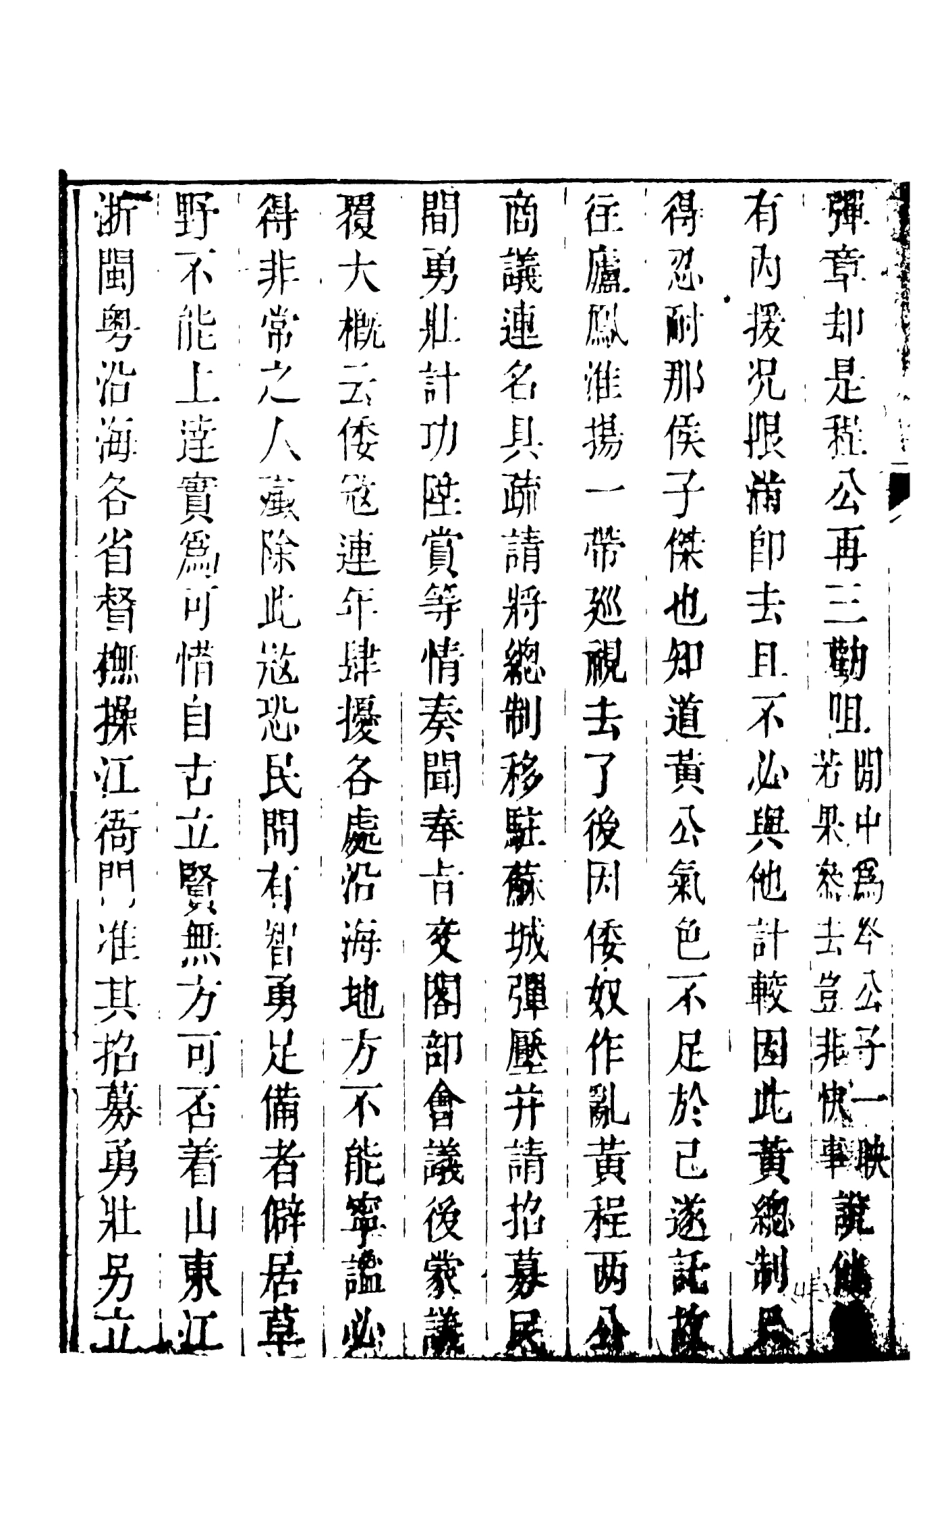 彈章却是程公再三勸咀閒中爲岑公子一映若果叅去豈非快事說他
有內援况限滿卽去且不必與他計較因此黃總制只
得忍耐那侯子傑也知道黃公氣色不足於己遂託故
往廬鳳淮揚一帶廵視去了後因倭奴作亂黃程两公
商議連名具疏請將總制移駐蘇城彈壓并請招募民
間勇壯計功陞賞等情奏聞奉旨交閣部會議後蒙議
覆大槪云倭宼連年肆擾各處沿海地方不能寧謐必
得非常之人殱除此宼恐民間有智勇足備者僻居草
野不能上達實爲可惜自古立賢無方可否着山東江
浙閩粤沿海各省督撫操江衙門准其招募勇壯另立